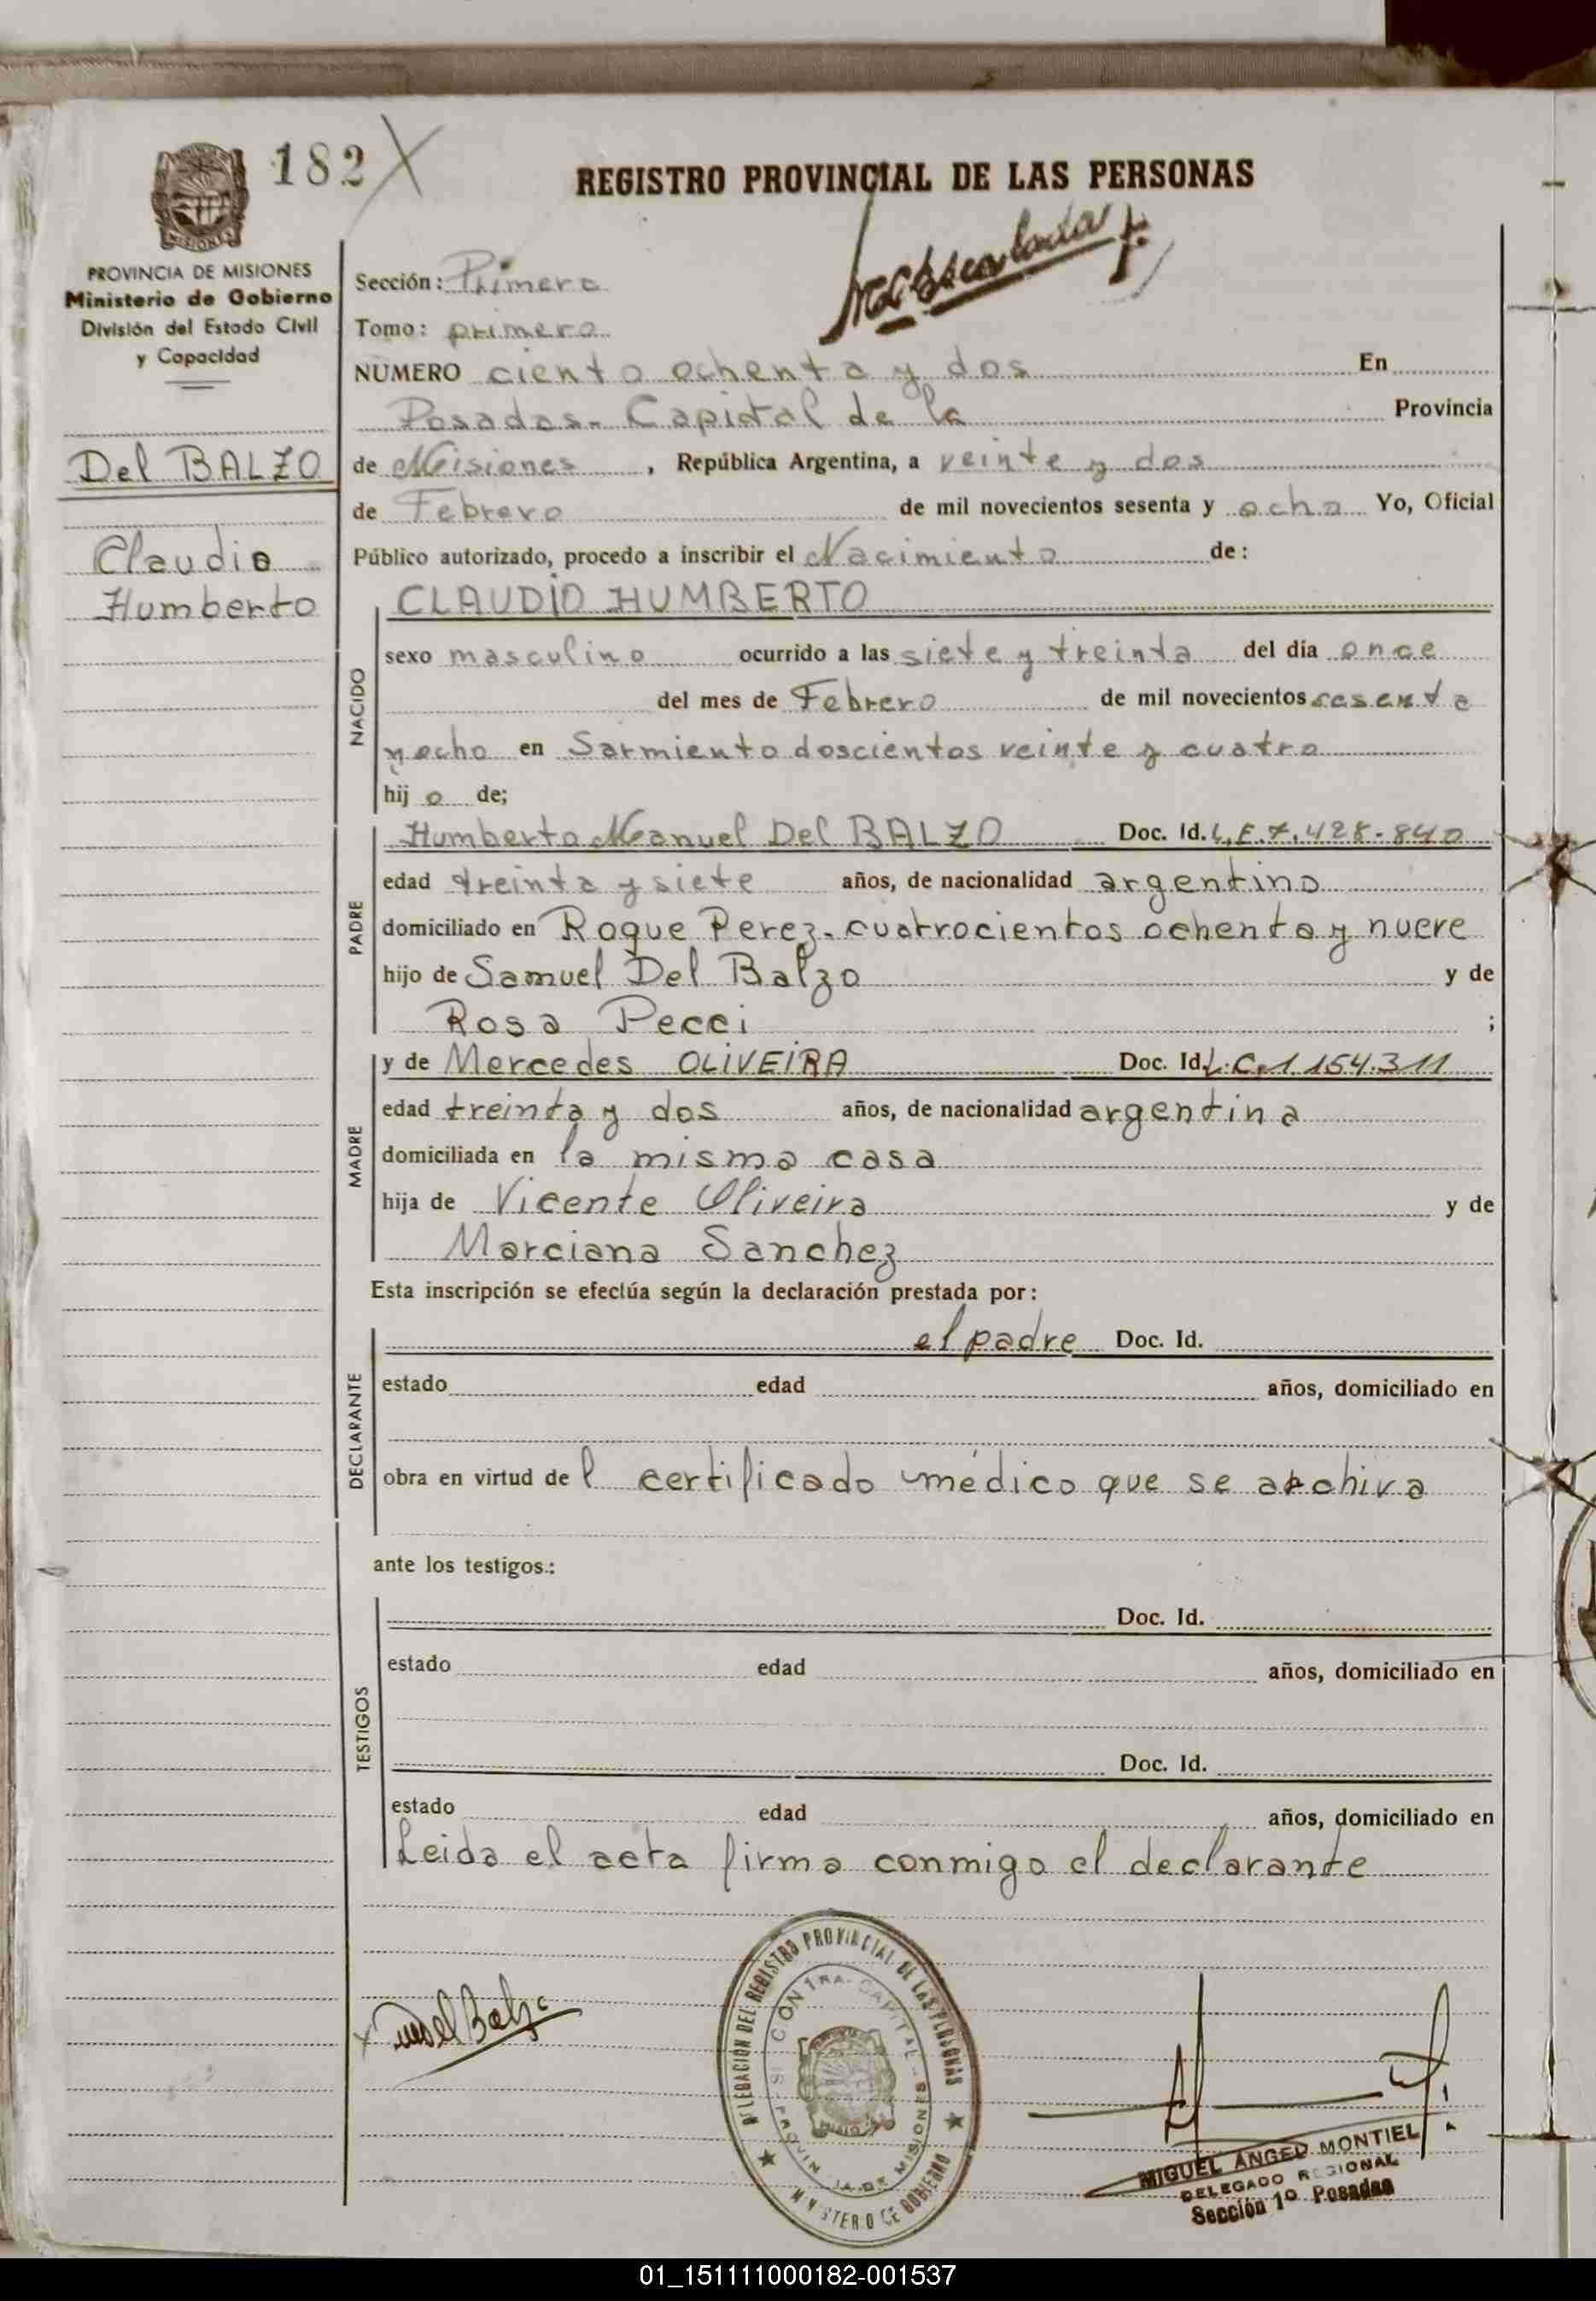 182 X
REGISTRO PROVINCIAL DE LAS PERSONAS
MISIONES
PROVINCIA DE MISIONES
Ministerio de Gobierno
División del Estado Civil
y Capacidad
Del BALZO
Claudio
Humberto
Sección: Primera
Tomo: primero
NUMERO ciento ochenta y dos En
Posadas - Capital de la Provincia
de Misiones, República Argentina, a veinte y dos
de Febrero de mil novecientos sesenta y ocho Yo, Oficial
Público autorizado, procedo a inscribir el Nacimiento de:
CLAUDIO HUMBERTO
NACIDO
sexo masculino ocurrido a las siete y treinta del día once
del mes de Febrero de mil novecientos sesenta
y ocho en Sarmiento doscientos veinte y cuatro
hij o de;
PADRE
Humberto Manuel Del BALZO Doc. Id. L.E. 7.428.840
edad treinta y siete años, de nacionalidad argentino
domiciliado en Roque Perez - cuatrocientos ochenta y nueve
hijo de Samuel Del Balzo y de
Rosa Pecci ;
MADRE
y de Mercedes OLIVEIRA Doc. Id. L.C. 1.154.311
edad treinta y dos años, de nacionalidad argentina
domiciliada en la misma casa
hija de Vicente Oliveira y de
Marciana Sanchez
Esta inscripción se efectúa según la declaración prestada por:
DECLARANTE
el padre Doc. Id.
estado edad años, domiciliado en
obra en virtud de l certificado médico que se archiva
ante los testigos.:
TESTIGOS
Doc. Id.
estado edad años, domiciliado en
Doc. Id.
estado edad años, domiciliado en
Leida el acta firma conmigo el declarante
DELEGACIÓN DEL REGISTRO PROVINCIAL DE LAS PERSONAS
CONTRA CAPITAL
PROVINCIA DE MISIONES
MINISTERIO DE GOBIERNO
MIGUEL ANGEL MONTIEL
DELEGADO REGIONAL
Sección 1º Posadas
01_151111000182-001537